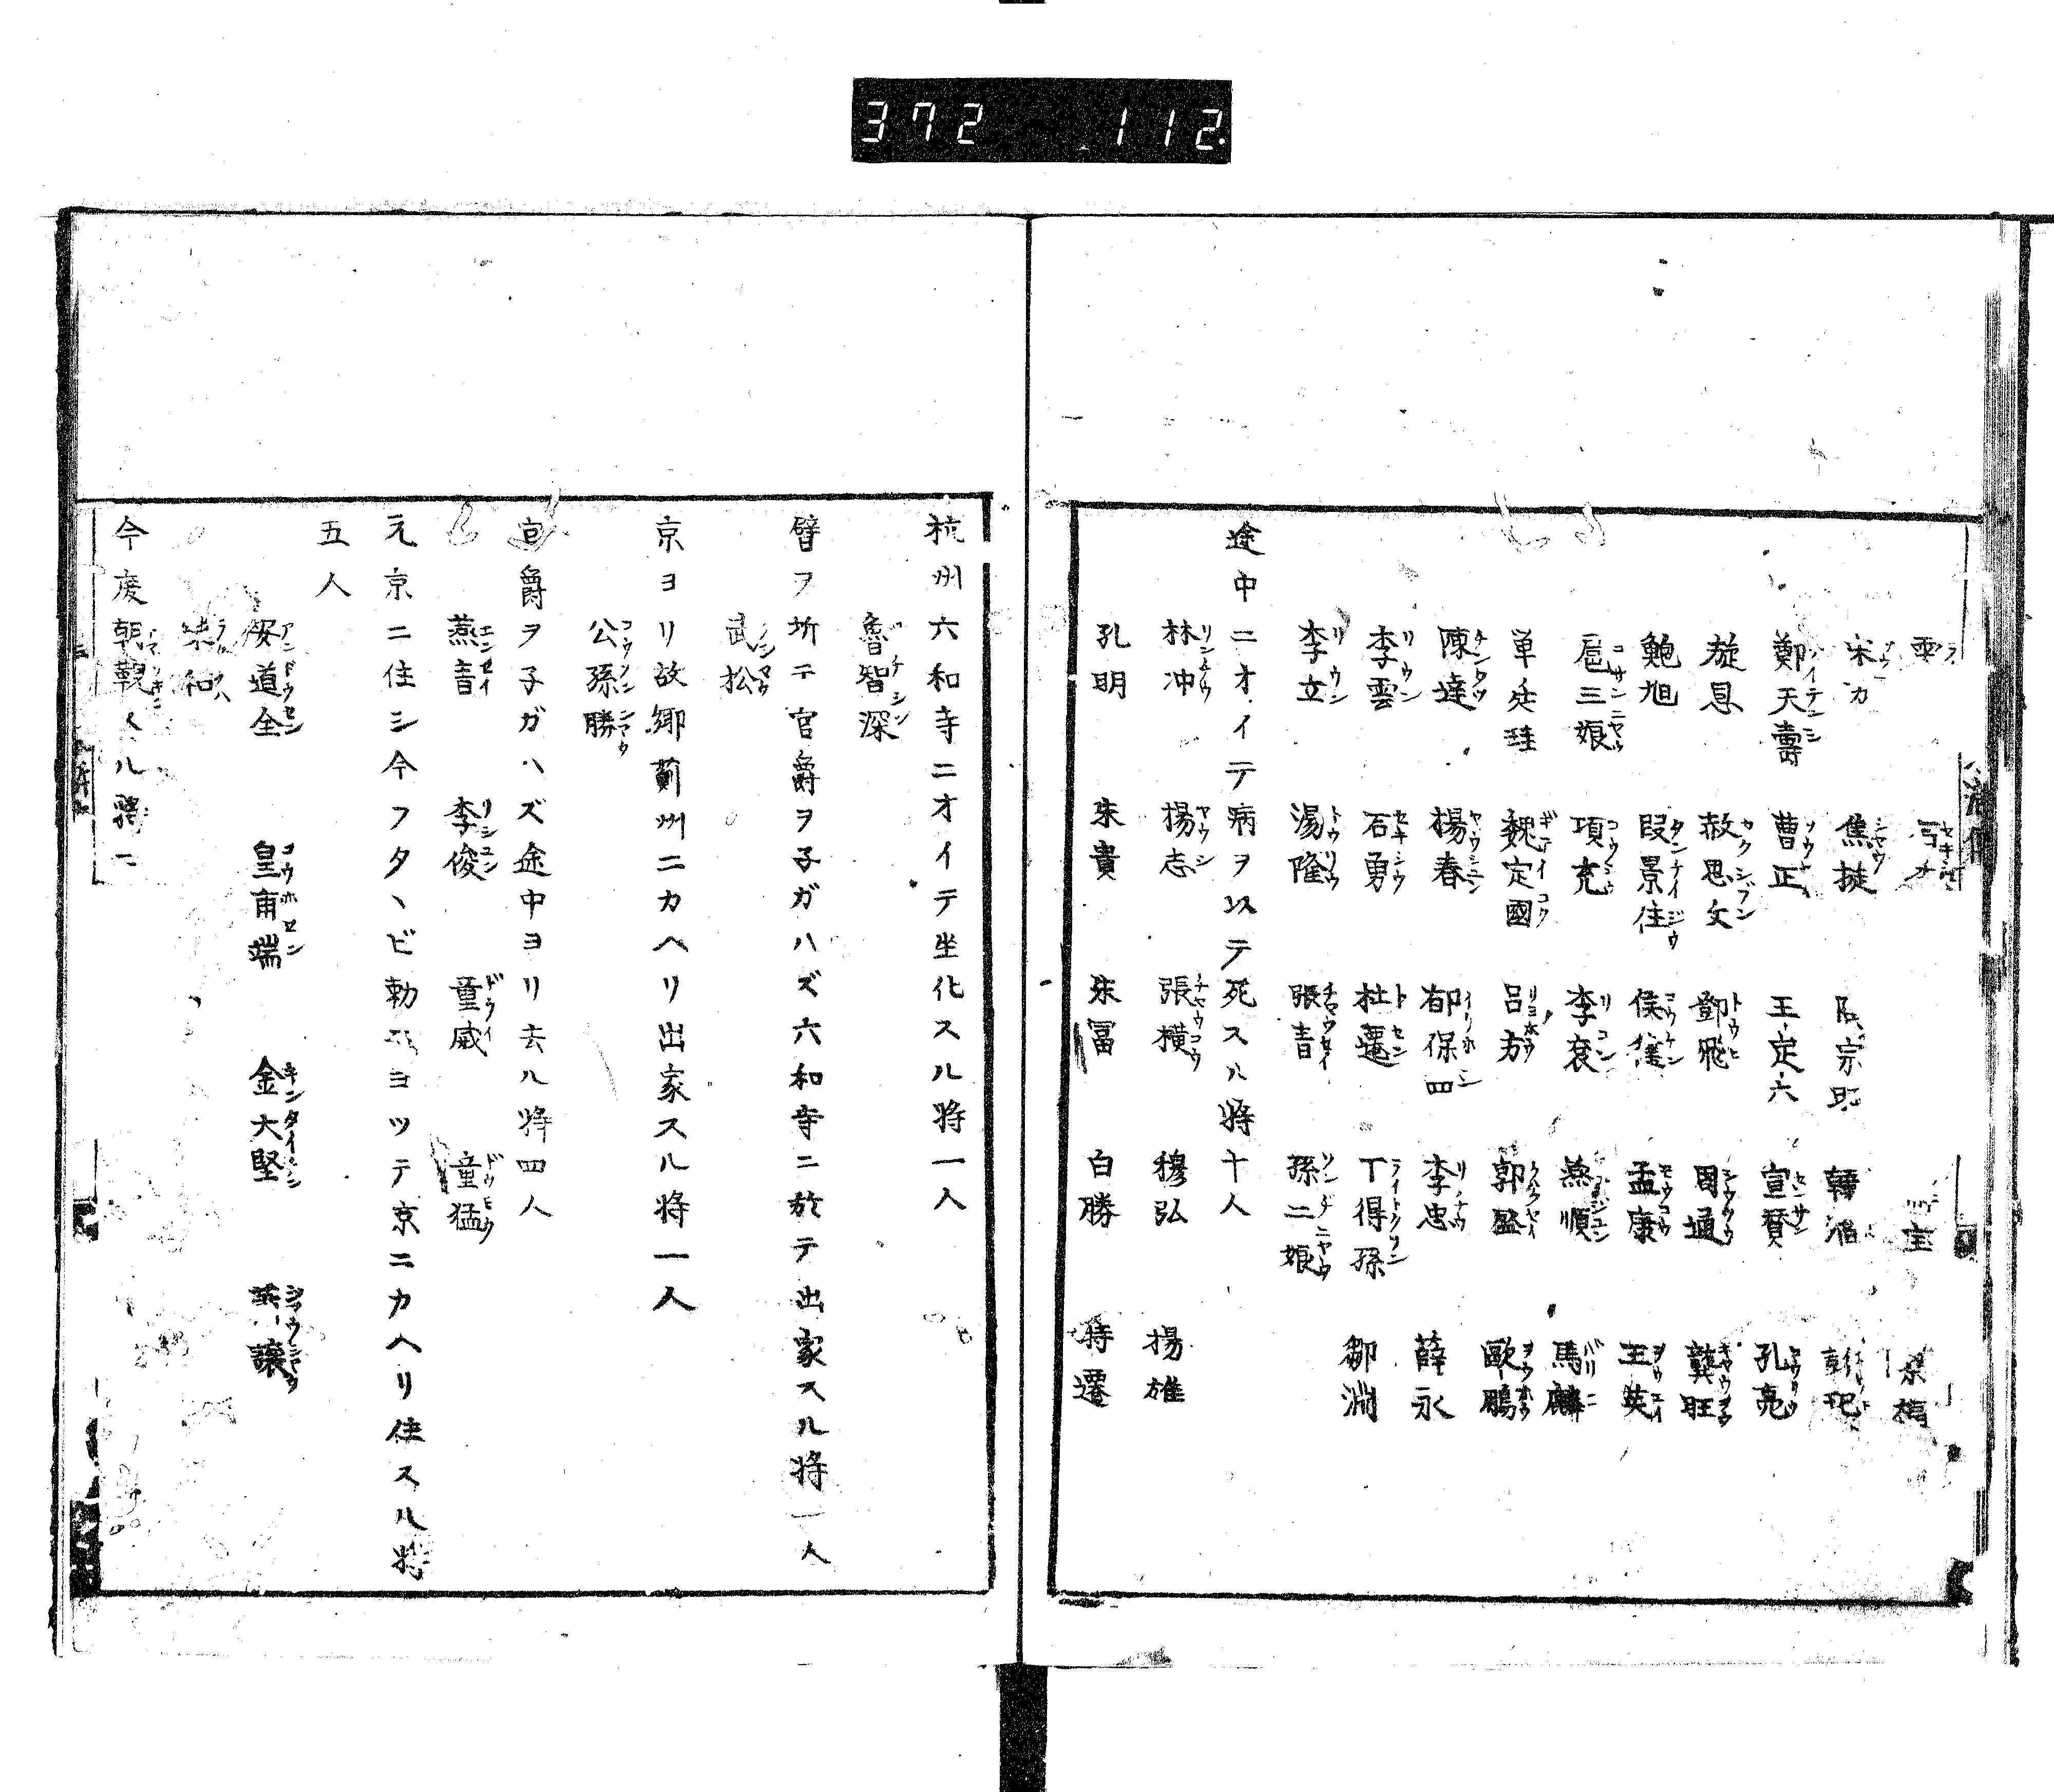 372 112.
雲 石 宝
宋 焦挺 阮宗 韓滔
鄭天壽 曹正 王定六 宣賛 孔亮
施恩 赦思文 鄧飛 周通 龔旺
鮑旭 段景住 侯健 孟康 王英
扈三娘 項充 李袞 燕順 馬麟
単廷珪 魏定國 呂方 郭盛 歐鵬
陳達 楊春 郁保四 李忠 薛永
李雲 石勇 杜遷 丁得孫 鄒淵
李立 湯隆 張青 孫二娘
途中ニオイテ病ヲ以テ死スル将十人
林冲 楊志 張横 穆弘 楊雄
孔明 朱貴 朱冨 白勝 時遷
杭州六和寺ニオイテ坐化スル将一人
魯智深
臂ヲ折テ官爵ヲ子ガハズ六和寺ニ於テ出家スル将一人
武松
京ヨリ故郷薊州ニカヘリ出家スル将一人
公孫勝
官爵ヲ子ガハズ途中ヨリ去ル将四人
燕青 李俊 童威 童猛
元京ニ住シ今フタヽビ勅ニヨツテ京ニカヘリ住スル将
五人
安道全 皇甫端 金大堅 譲
和
今度朝覲スル将二